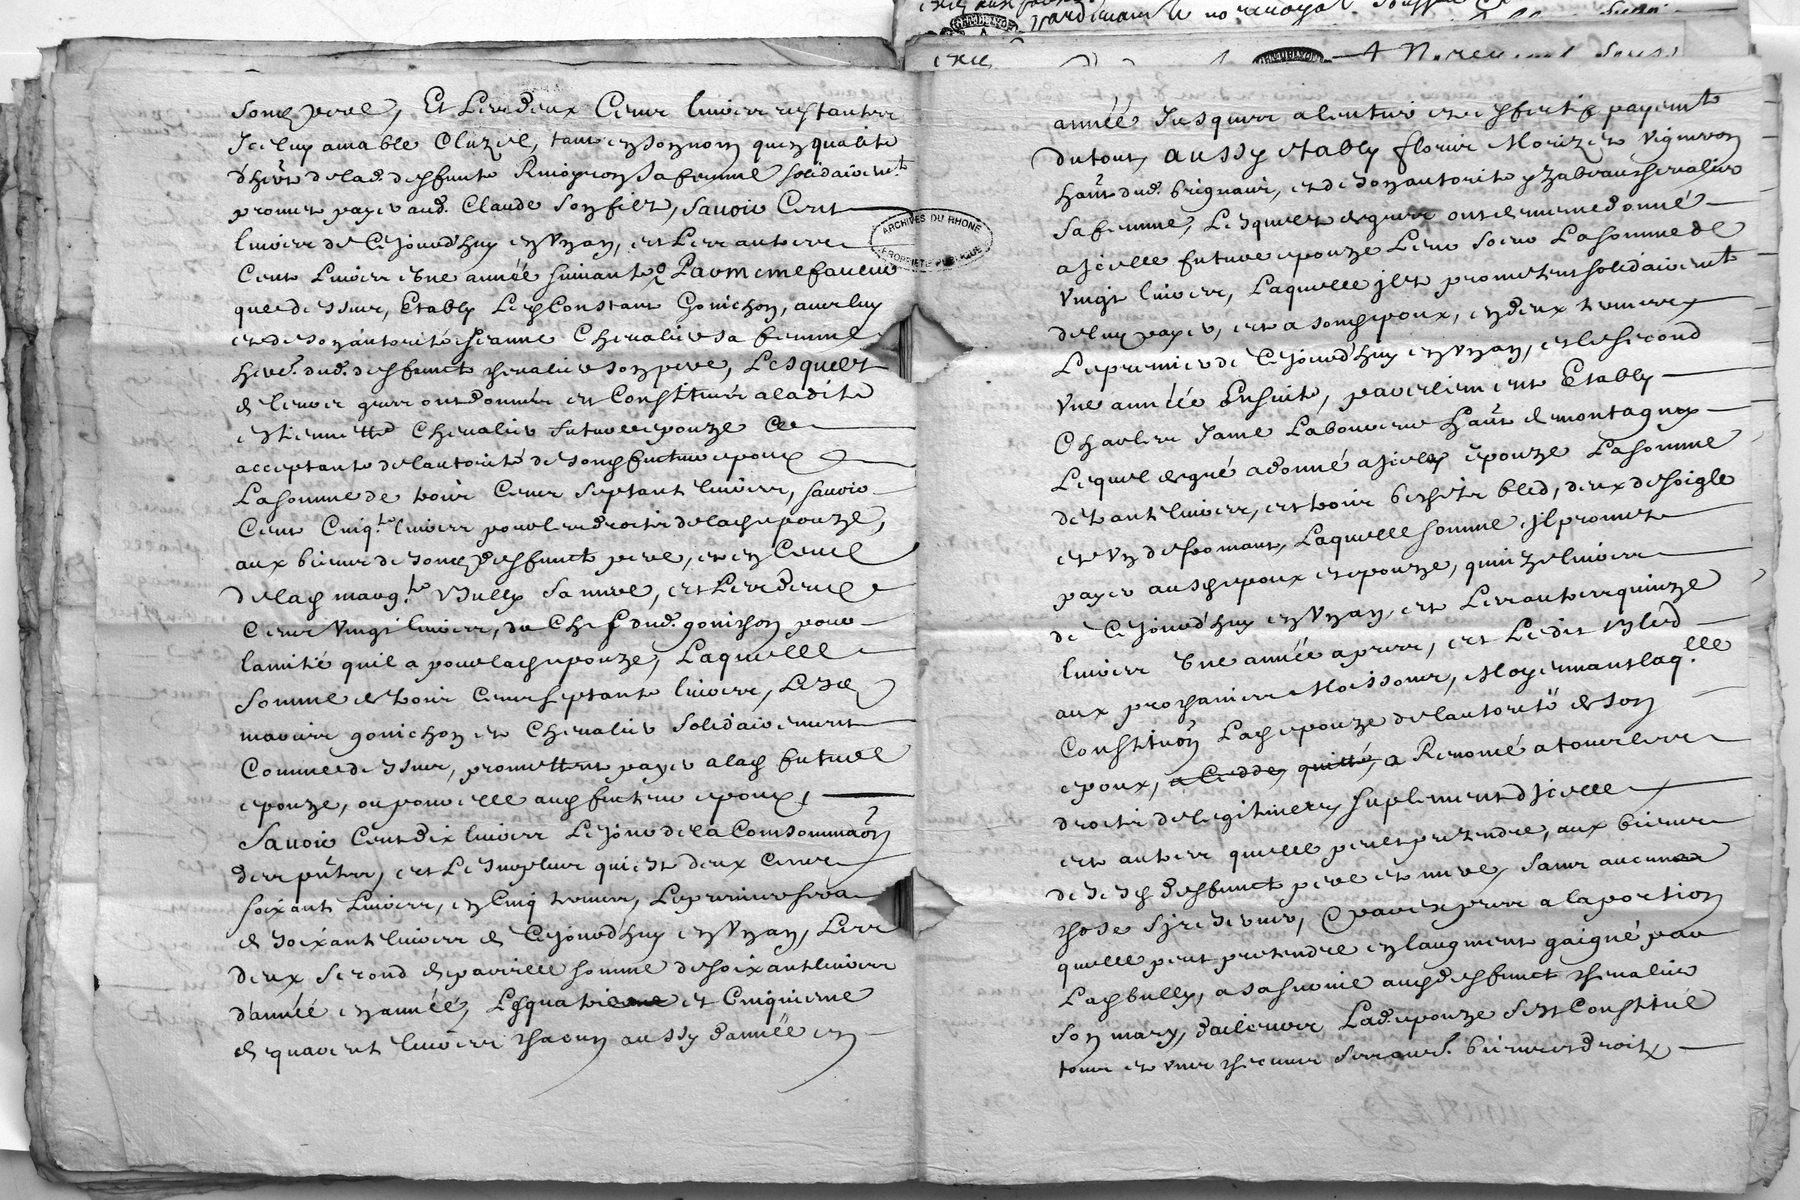 son pere, Et Les deux Cens livres restantes
Iceluy amable Cluzel, tant en son nom qu'en qualité
d'he.r de lad. deffunte sa femme solidairem.t
promet payer aud. Claude son filz, savoir Cent
livres de Cejourd'huy en Un an, et Les autres
Cent Livres Une année suivante, Par mesme faveur
que dessus, Establys Constant Gonichon, avec luy
et de son autorité Jeanne Chevalier sa femme
here. dud. deffunct chevalier son pere, Lesquelz
de leurs grez ont donnés et Constitués à ladite
Estiennette Chevalier future epouze Ce
acceptante de l'autorité de son futur epoux
La somme de trois Cens septante livres, savoir
Cent Cinq.te livres pour les droits de lad. epouze,
aux biens de son deffunct pere, et en Ceux
de lad. marg.te Bully sa mere, et Les deux
Cens Vingt livres, du Chef dud. gonichon pour
lamitié qu'il a pour lad. epouze, Laquelle
Somme de trois Cens septante livres, Lesd.
mariés gonichon et Chevalier solidairement
Comme dessus, promettent payer a lad. future
epouze, ou pour elle aud. futur epoux,
Savoir Cent dix livres Le jour de la Consommaõn
des pñtes, et Le surplus qui est deux Cens
soixante Livres, en Cinq termes, Le premier sera
de soixante livres de Cejourd'huy en Un an, Les
deux second de pareille somme de soixante livres
d'année en année, Les quatrieme et Cinquieme
de quarente livres chacun aussy d'année en
ARCHIVES DU RHONE
PROPRIETE PUBLIQUE
année Jusques a l'entier et effectif payem.t
du tout, aussy estably floris Morizet Vigneron
hañt dud. brignais, et de son autorité yzabeau chevalier
sa femme, Lesquelz de grez ont de mesme donné
a Jcelle future epouze Leur soeur La somme de
Vingt livres, Laquelle jlz promettent solidairem.t
de luy payer, et a son epoux, en deux termes
Le premier de Cejourd'huy en Un an, et le second
Une année Ensuite, pareillement Estably
Charles Jame Laboureur hañt de montagny
Lequel de gré a donné a Jcelle epouze La somme
de trante livres, et trois bichetz bled, deux de soigle
et Un de froment, Laquelle somme jl promet
payer ausd. epoux et epouze, quinze livres
de Cejourd'huy en Un an, et Les autres quinze
livres Une année apres, et Ledit bled
aux prochaines Moissons, Moyennant laq.lle
Constituõn Lad. epouze de l'autorité de son
epoux, a Cedde, quitté, a Renoncé a tous les
droits de legitimes, suplement d'Jcelle
et autres qu'elle peut pretendre, aux biens
de sesd. deffunct pere et mere, sans aucune
chose s'y reserver, Et par exprez a la portion
qu'elle peut pretendre en laugment gaigné par
Lad. bully, a sa survie aud. deffunct chevalier
son mary, d'ailleurs Lad. epouze s'est Constitué
tous et uns chacuns ses aures. biens et droitz